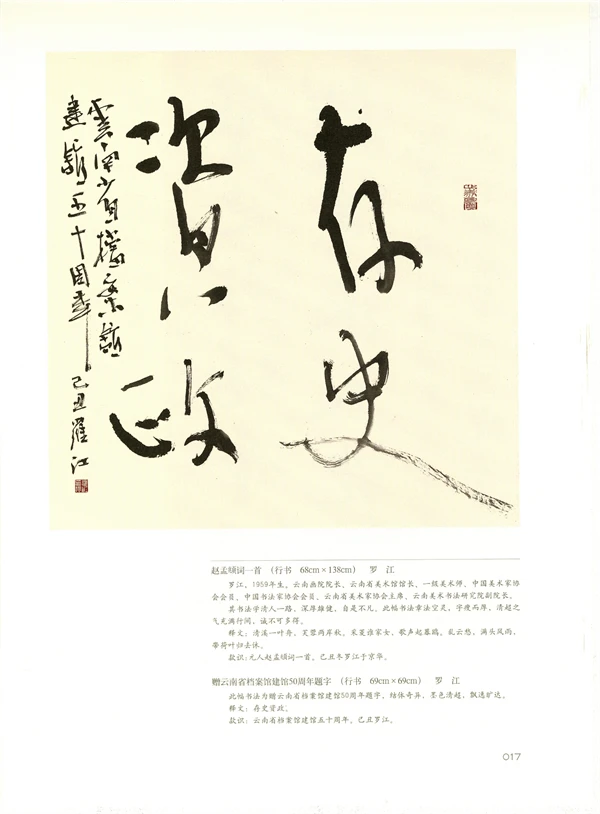 存史
资政
雲南省檔案館
建館五十周年
己丑羅江
赵孟頫词一首 （行书 68cm×138cm） 罗 江
罗江，1959年生。云南画院院长、云南省美术馆馆长、一级美术师、中国美术家协
会会员、中国书法家协会会员、云南省美术家协会主席、云南美术书法研究院副院长。
其书法学清人一路，深厚雄健，自是不凡。此幅书法章法空灵，字瘦而厚，清超之
气充满行间，诚不可多得。
释文：清溪一叶舟，芙蓉两岸秋。采菱谁家女，歌声起暮鸥。乱云愁，满头风雨，
带荷叶归去休。
款识：元人赵孟頫词一首，己丑冬罗江于京华。
赠云南省档案馆建馆50周年题字 （行书 69cm×69cm） 罗 江
此幅书法为赠云南省档案馆建馆50周年题字，结体奇异，墨色清超，飘逸旷达。
释文：存史资政。
款识：云南省档案馆建馆五十周年。己丑罗江。
017